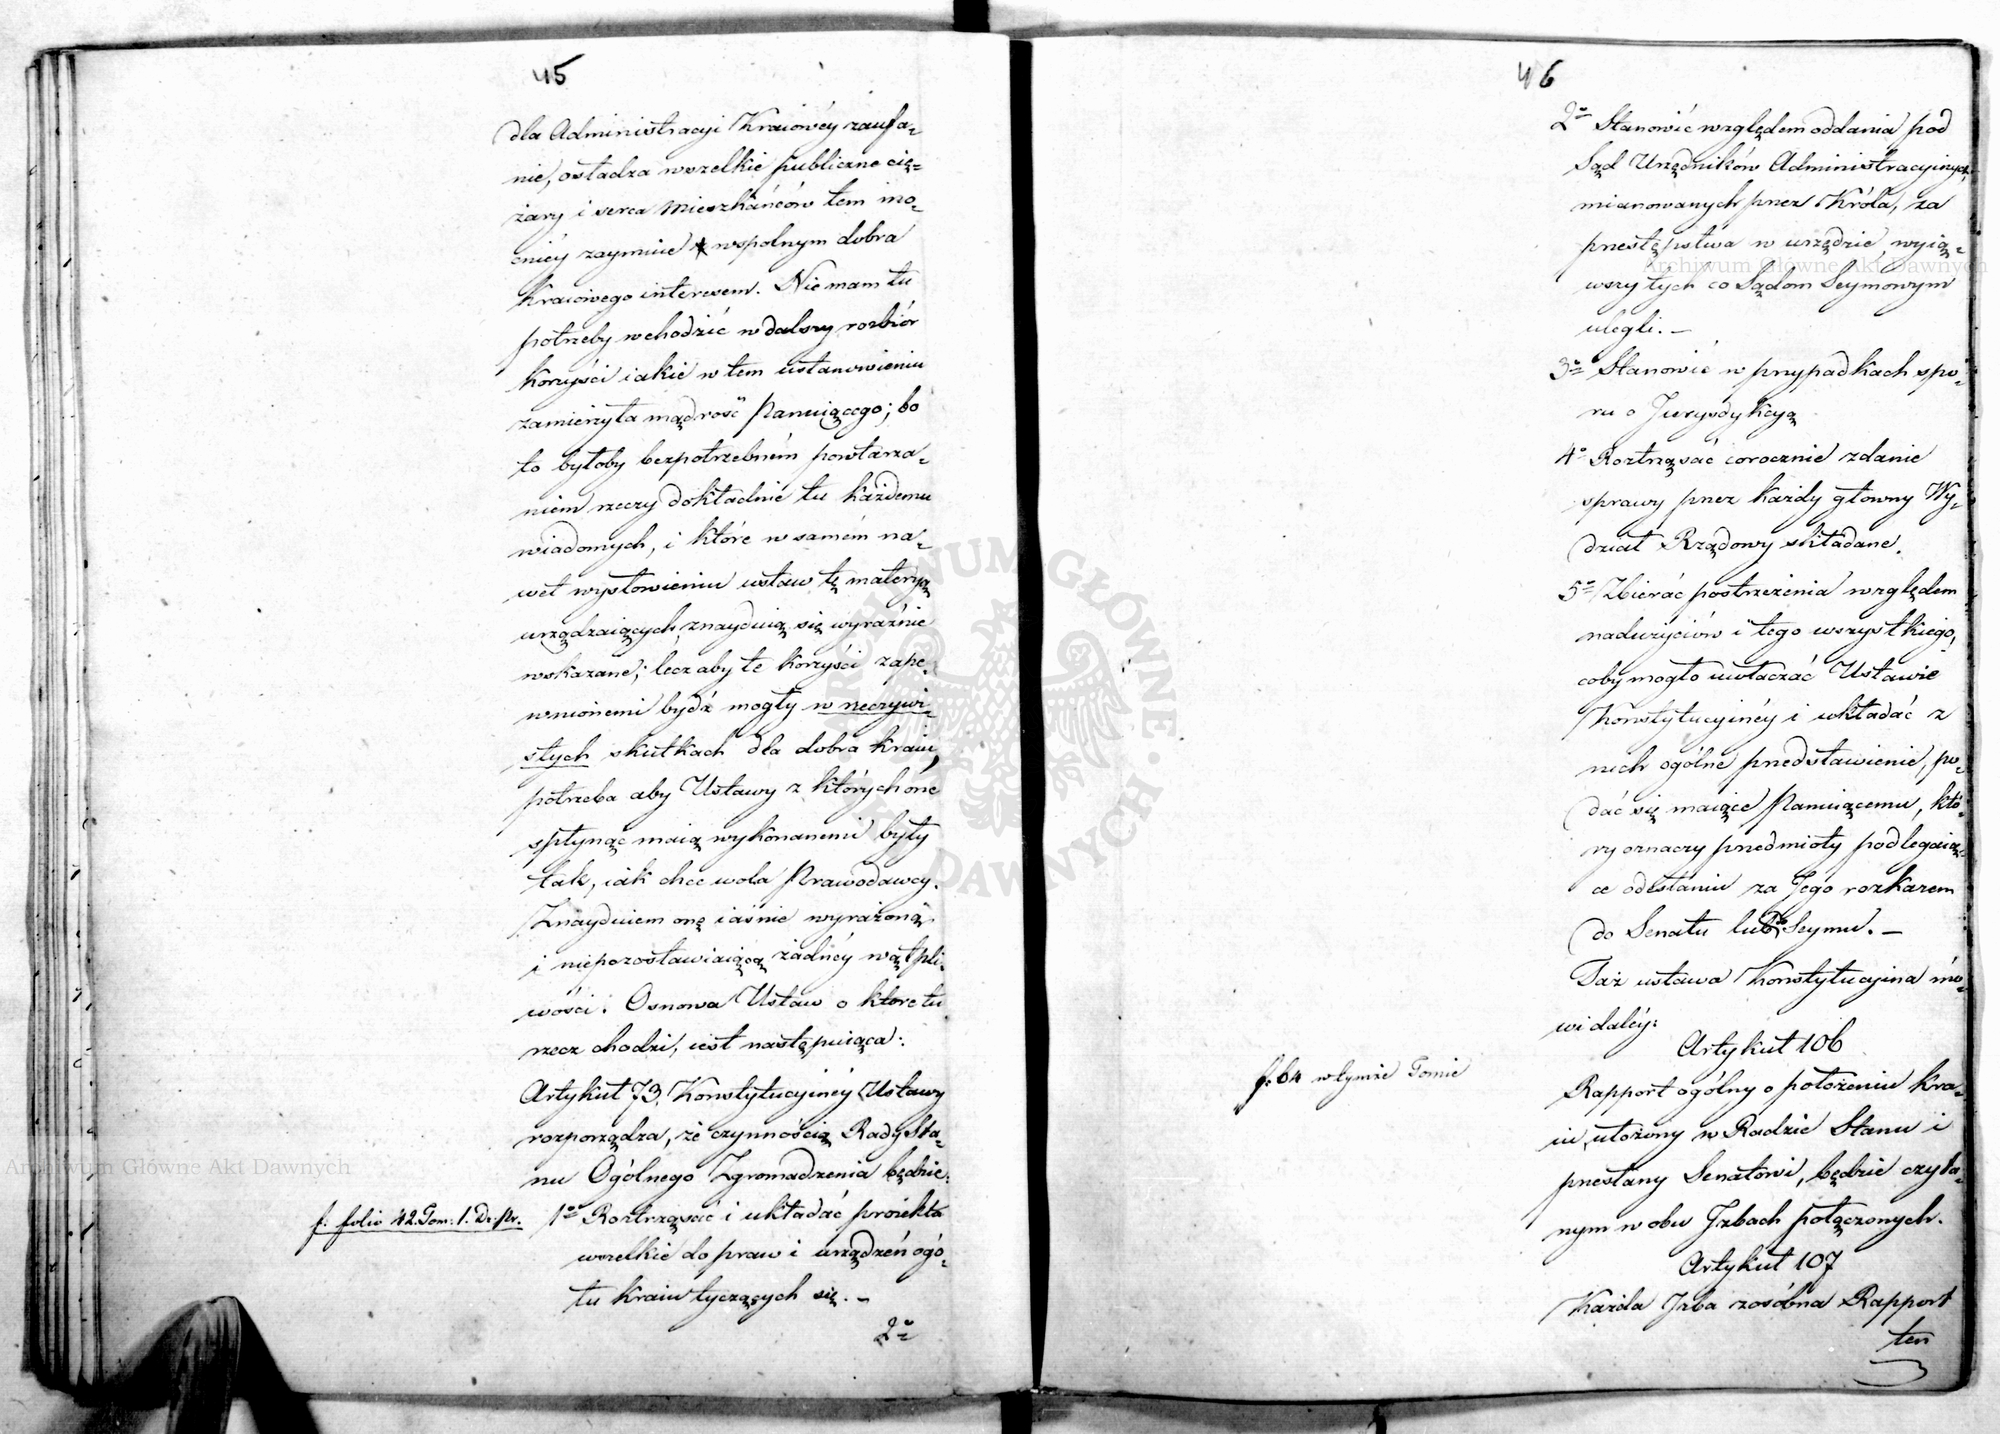 45
dla Administracyi Kraiowéy zaufa=
nie, osładza wszelkie publiczne cię=
żary i serca Mieszkańców tem mo=
cniéy zaymuie wspolnym dobra
Kraiowego interesem. Nie mam tu
potrzeby wchodzić w dalszy rozbiór
korzyści iakie w tem ustanowieniu
zamierzyła mądrość Panuiącego; bo
to byłoby bezpotrzebném powtarza=
niem rzeczy dokładnie tu każdemu
wiadomych, i które w samém na=
wet wysłowieniu ustaw tę materyą
urządzaiących znayduią się wyraźnie
wskazane; lecz aby te korzyści zape=
wnionemi bydź mogły w rzeczywi=
stych skutkach dla dobra kraiu,
potrzeba aby Ustawy z których one
spłynąć maią wykonanemi były
tak, iak chce wola Prawodawcy.
Znayduiem onę iaśnie wyrażoną
i niepozostawiaiącą żadnéy wątpli=
wości. Osnowa Ustaw o które tu
rzecz chodzi, iest następuiąca:
Artykuł 73. Konstytucyinéy Ustawy
rozporządza, że czynnością Rady Sta=
nu Ogólnego Zgromadzenia będzie:
f. folio 42. Tom: 1. Dz: Pr.
1º Roztrząsać i układać proiekta
wszelkie do praw i urządzeń ogó=
łu kraiu tyczących się. –
2º
46
2º Stanowić względem oddania pod
Sąd Urzędników Administracyinych,
mianowanych przez Króla, za
przestępstwa w urzędzie, wyią=
wszy tych co Sądom Seymowym
ulegli. –
3º Stanowić w przypadkach spo=
ru o Jurysdykcyą
4º Roztrząsać corocznie zdanie
sprawy przez każdy głowny Wy=
dział Rządowy składane.
5º Zbierać postrzeżenia względem
nadużyciów i tego wszystkiego,
coby mogło uwłaczać Ustawie
Konstytucyinéy i układać z
nich ogólne przedstawienie, po=
dać się maiące Panuiącemu, któ=
ry oznaczy przedmioty podlegaią=
ce odesłaniu za Jego rozkazem
do Senatu lub do Seymu. –
Taż ustawa Konstytucyina mó=
wi daléy:
Artykuł 106
f: 64 w tymże Tomie
Rapport ogólny o położeniu kra=
iu, ułożony w Radzie Stanu i
przesłany Senatowi, będzie czyta=
nym w obu Izbach połączonych.
Artykuł 107
Każda Izba zosóbna Rapport
ten
Archiwum Główne Akt Dawnych
Archiwum Główne Akt Dawnych
ARCHIWUM GŁÓWNE AKT DAWNYCH